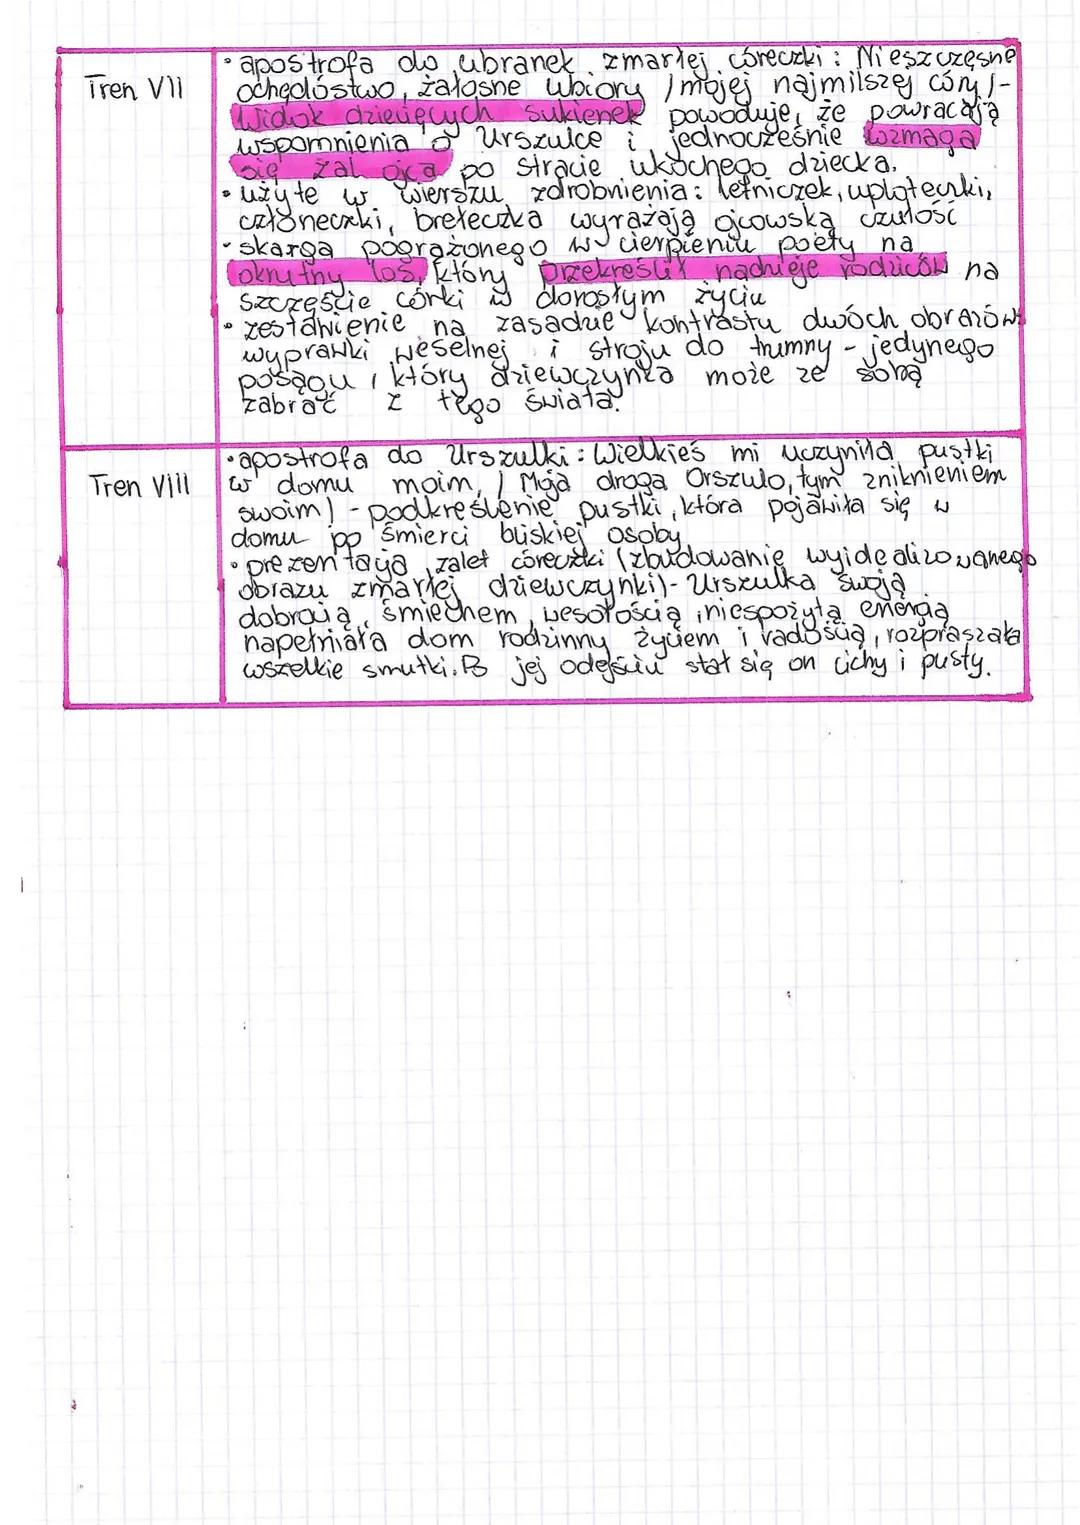 Tren VII
• apostrofa do ubranek zmarłej córeczki: Nieszczęsne
ochędóstwo, żałosne ubiory / mojej najmilszej córy / -
Widok dziecięcych sukienek powoduje, że powracają
wspomnienia o Urszulce i jednocześnie wzmaga
się żal ojca po stracie ukochego dziecka.
• użyte w wierszu zdrobnienia: letniczek, uploteczki,
członeczki, breteczka wyrażają ojcowską czułość
• skarga pogrążonego w cierpieniu poety na
okrutny los, który przekreślił nadzieje rodziców na
szczęście córki w dorosłym życiu
• zestawienie na zasadzie kontrastu dwóch obrazów:
wyprawki weselnej i stroju do trumny - jedynego
posagu, który dziewczynka może ze sobą
zabrać z tego świata.
Tren VIII
• apostrofa do Urszulki: Wielkieś mi uczyniła pustki
w domu moim, / Moja droga Orszulo, tym zniknieniem
swoim) - podkreślenie pustki, która pojawiła się w
domu po śmierci bliskiej osoby
• prezentacja zalet córeczki (zbudowanie wyidealizowanego
obrazu zmarłej dziewczynki) - Urszulka swoją
dobrocią, śmiechem, wesołością, niespożytą energią
napełniała dom rodzinny życiem i radością, rozpraszała
wszelkie smutki. Po jej odejściu stał się on cichy i pusty.